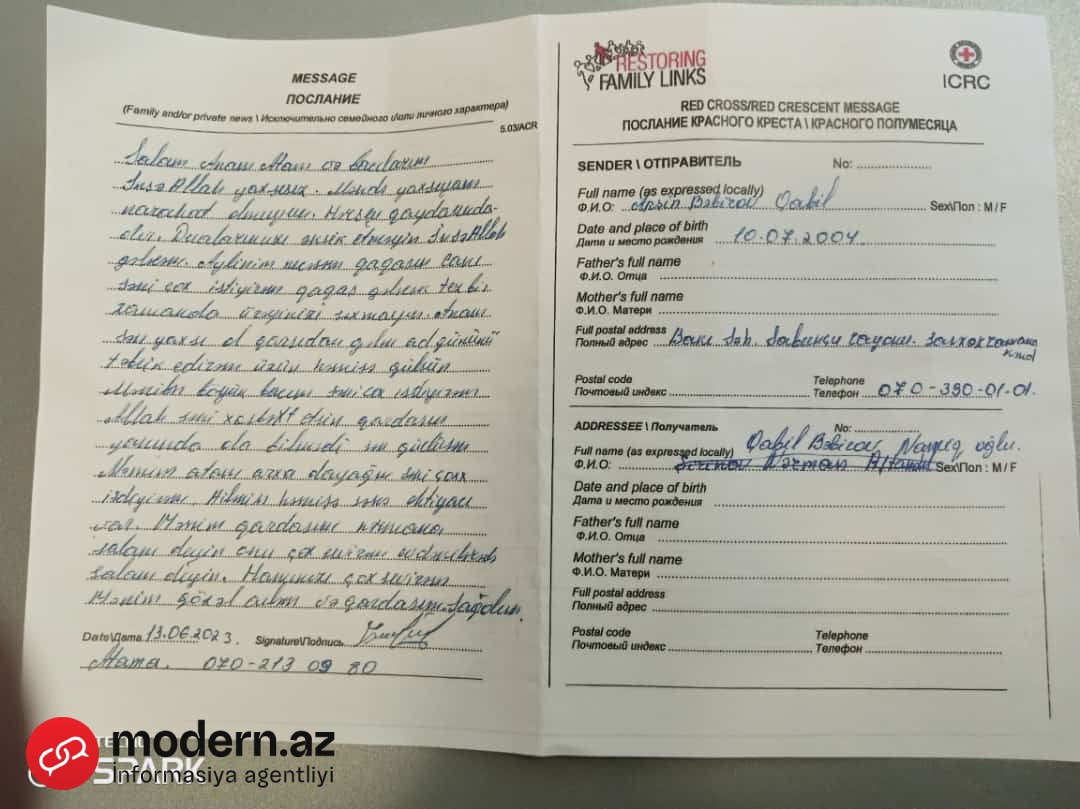 MESSAGE
ПОСЛАНИЕ
(Family and/or private news \ Исключительно семейного и\или личного характера)
5.03/ACR
Salam Anam Atam və bacılarım
İnşəAllah yaxşısız. Məndə yaxşıyam
narahat olmuyun. Hərşey qaydasında-
dır. Dualarınızı əksik etməyin İnşəAllah
gələrəm. Aylinim mənim qaqasın canı
səni çox istiyirəm qaqaş gələcək tez bir
zamanda ürəyinizi sıxmayın. Anam
sən yaxşı ol qarşıdan gələn ad gününü
təbrik edirəm üzün həmişə gülsün
böyük bacım səni çox istəyirəm
Allah səni xoşbəxt etsin qardaşın
yanında ola bilmədi
Mənim atam arxa dayağım səni çox
istəyirəm. həmişə sənə ehtiyacı
var. Mənim qardaşım
salam deyin onu çox sevirəm
salam deyin. Hamınızı çox sevirəm
Mənim gözəl ailəm və qardaşım. Sağolun.
Date\Дата 13.06.2023. Signature\Подпись
Atama. 070-213 09 80
RESTORING
FAMILY LINKS
ICRC
RED CROSS/RED CRESCENT MESSAGE
ПОСЛАНИЕ КРАСНОГО КРЕСТА \ КРАСНОГО ПОЛУМЕСЯЦА
SENDER \ ОТПРАВИТЕЛЬ No:
Full name (as expressed locally)
Ф.И.О: Bəbirov Qabil Sex\Пол : M / F
Date and place of birth
Дата и место рождения 10.07.2004.
Father's full name
Ф.И.О. Отца
Mother's full name
Ф.И.О. Матери
Full postal address
Полный адрес Bakı şəh. Sabunçu rayonu.
Postal code Telephone
Почтовый индекс Телефон 070-390-01-01.
ADDRESSEE \ Получатель No:
Qabil Bəbirov Namiq oğlu.
Full name (as expressed locally)
Ф.И.О: Sex\Пол : M / F
Date and place of birth
Дата и место рождения
Father's full name
Ф.И.О. Отца
Mother's full name
Ф.И.О. Матери
Full postal address
Полный адрес
Postal code Telephone
Почтовый индекс Телефон
modern.az
informasiya agentliyi
SPARK